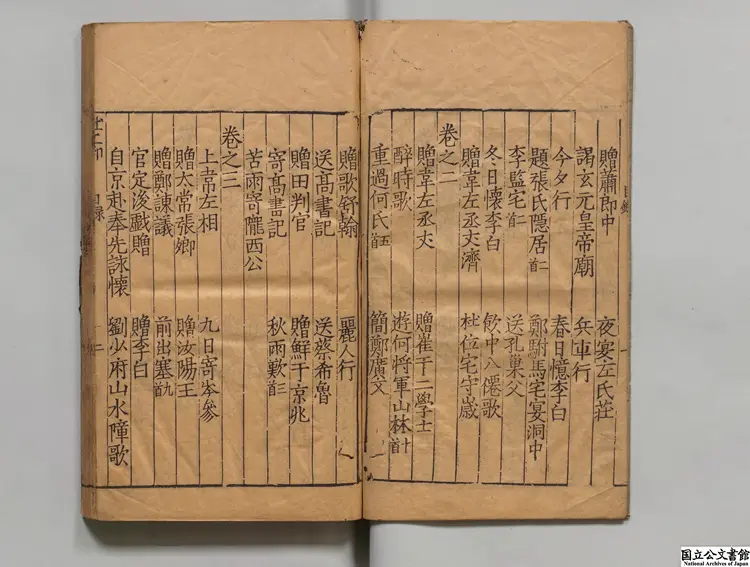 目錄
贈蕭郎中　夜宴左氏莊
謁玄元皇帝廟　兵車行
今夕行　春日憶李白
題張氏隱居二首　鄭駙馬宅宴洞中
李監宅二首　送孔巢父
冬日懷李白　飲中八僊歌
贈韋左丞丈濟　杜位宅守歲
卷之二
贈韋左丞丈　贈崔于二學士
醉時歌　遊何將軍山林十首
重過何氏五首　簡鄭廣文
贈歌舒翰　麗人行
送高書記　送蔡希魯
贈田判官　贈鮮于京兆
寄高書記　秋雨歎三首
苦雨寄隴西公
卷之三
上韋左相　九日寄岑參
贈太常張卿　贈汝陽王
贈鄭諫議　前出塞九首
官定後戲贈　贈李白
自京赴奉先詠懷　劉少府山水障歌
目錄
二
国立公文書館
National Archives of Japan